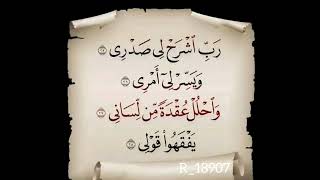 رَبِّ ٱشْرَحْ لِى صَدْرِى
وَيَسِّرْ لِىٓ أَمْرِى
وَٱحْلُلْ عُقْدَةً مِّن لِّسَانِى
يَفْقَهُوا۟ قَوْلِى
R_18907